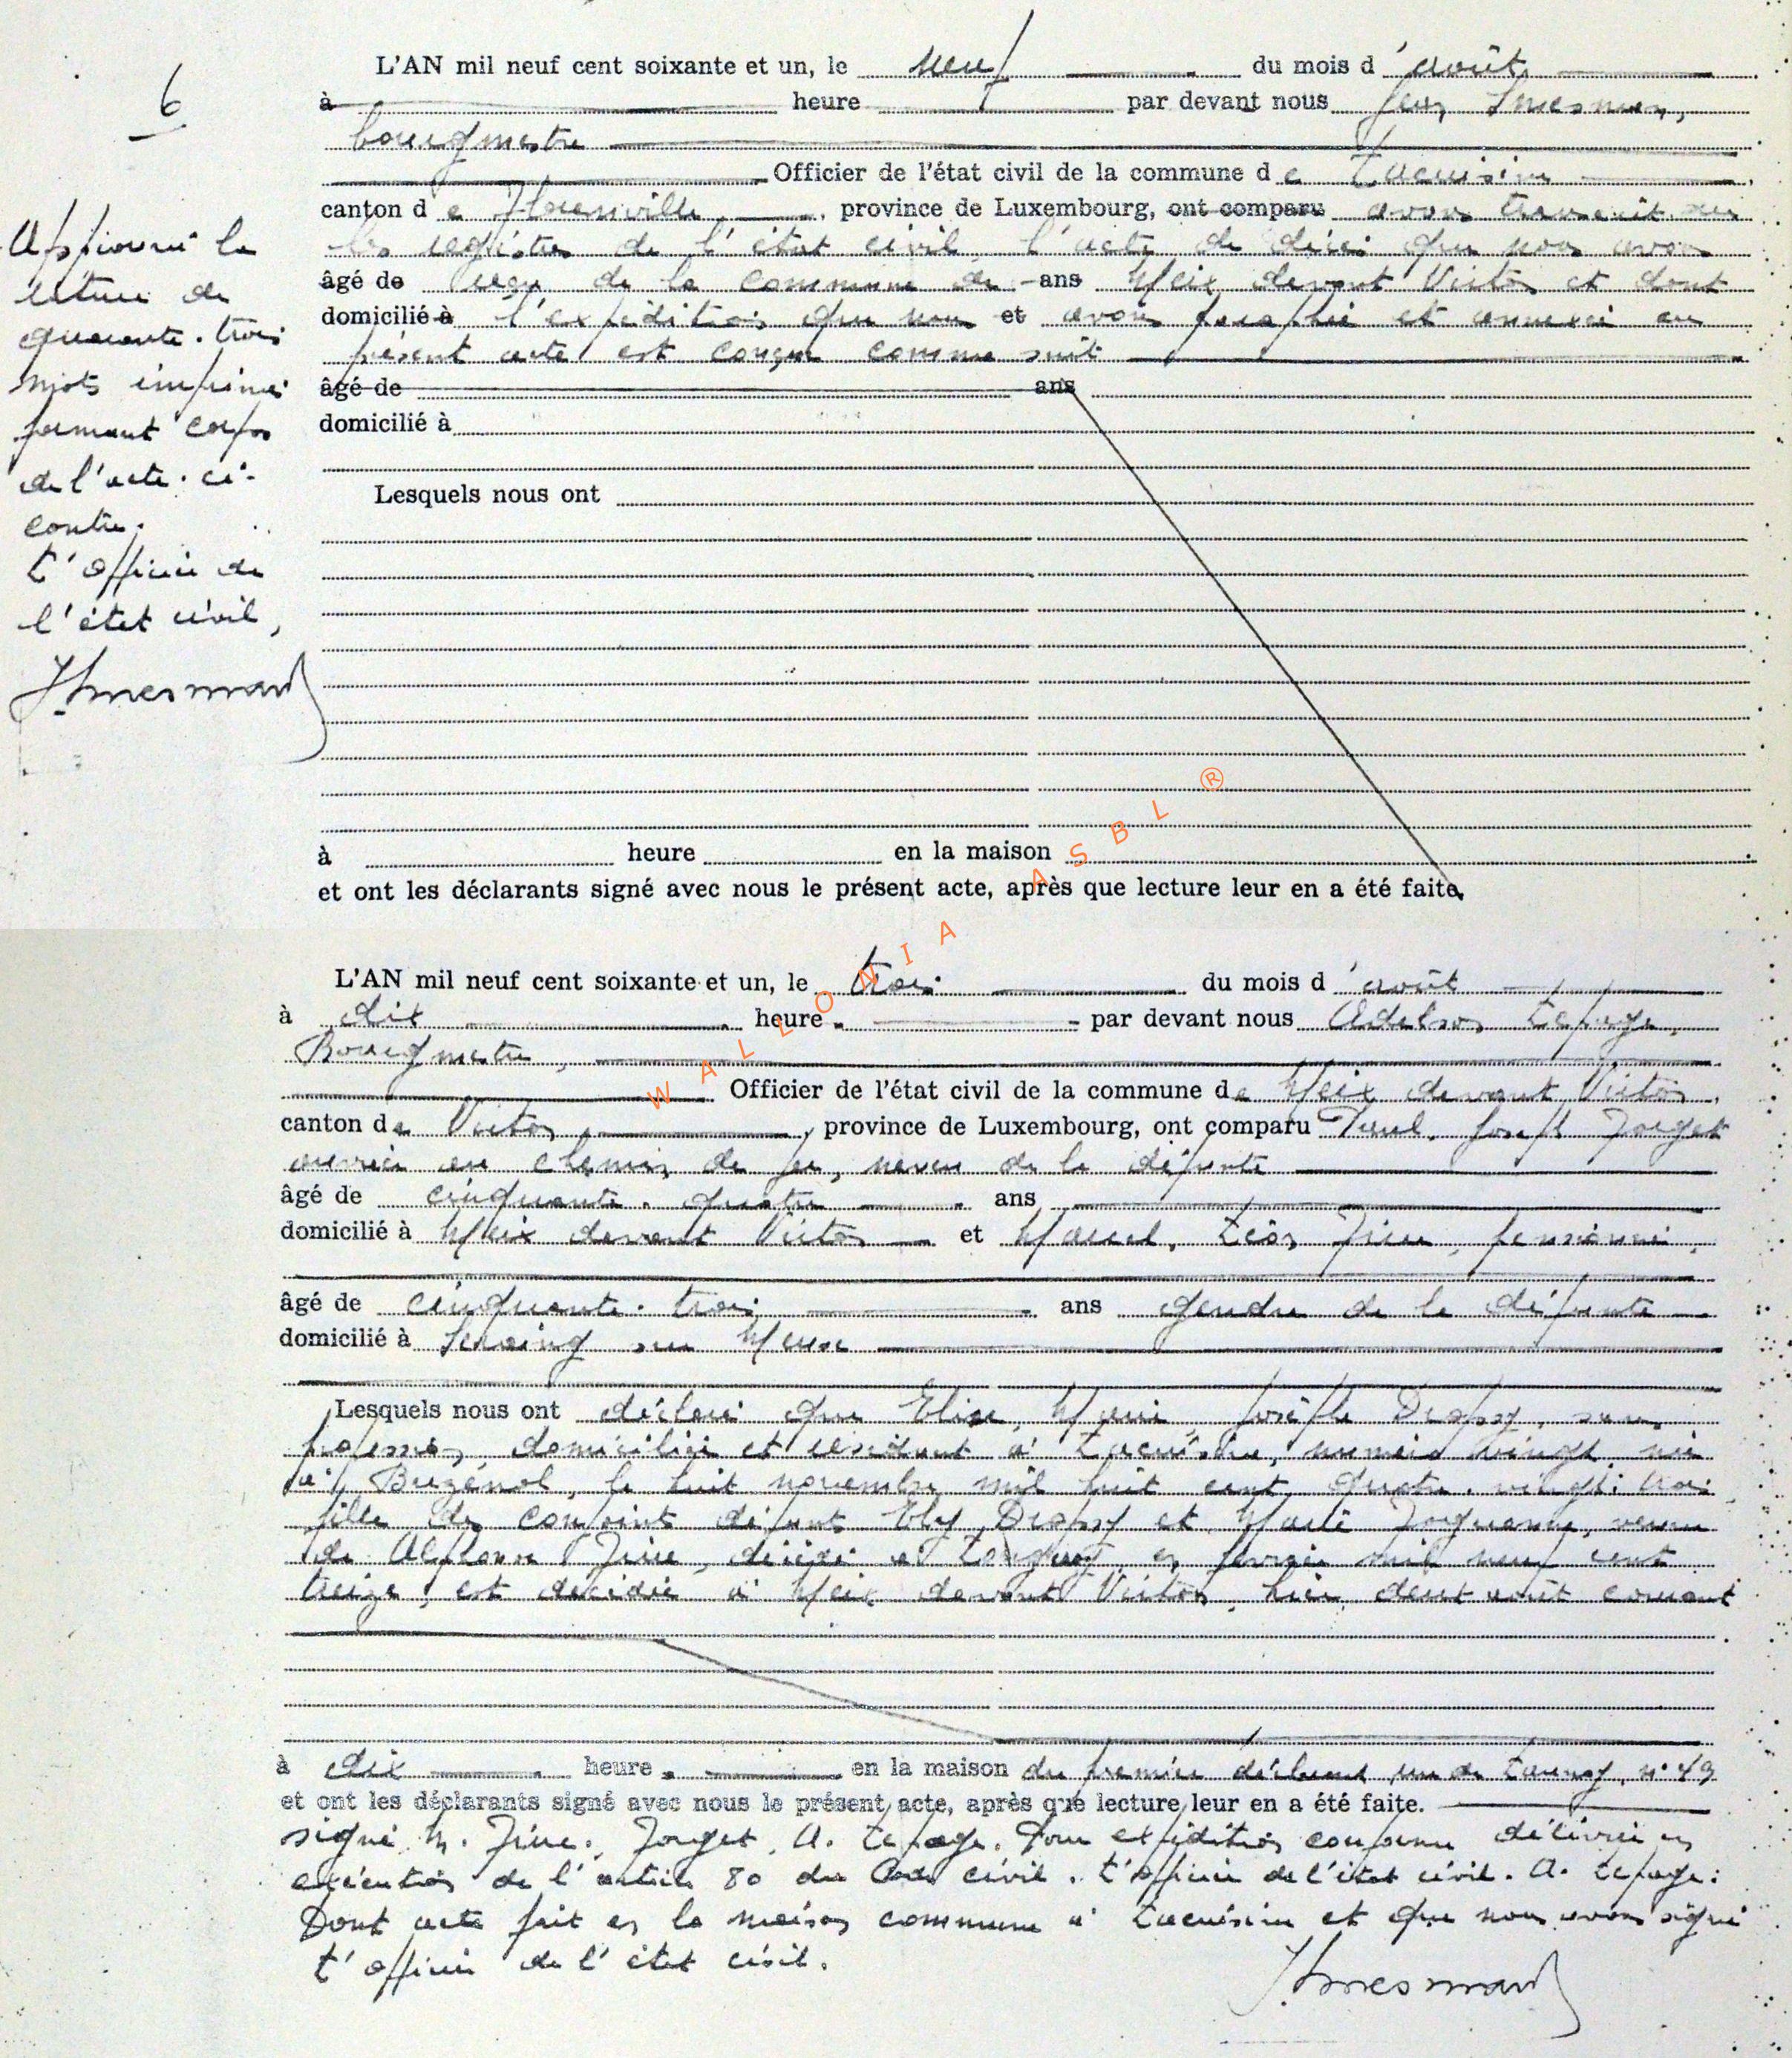 6
L'AN mil neuf cent soixante et un, le neuf du mois d'août
à heure par devant nous Jean
bourgmestre
Officier de l'état civil de la commune de Lacuisine
canton de Florenville, province de Luxembourg, ont comparu avons transcrit sur
les registres de l'état civil, l'acte de décès que nous avons
âgé de reçu de la commune de ans Meix devant Virton et dont
domicilié à l'expédition que nous et avons paraphée et annexée au
présent acte est conçue comme suit
âgé de ans
domicilié à
Lesquels nous ont
à heure en la maison
et ont les déclarants signé avec nous le présent acte, après que lecture leur en a été faite,
Approuvé la
rature de
quarante-trois
mots imprimés
formant corps
de l'acte ci-
contre.
L'officier de
l'état civil,
WALLONIA ASBL ®
L'AN mil neuf cent soixante et un, le trois du mois d'août
à dix heure par devant nous Adelson Lepage,
Bourgmestre,
Officier de l'état civil de la commune de Meix devant Virton,
canton de Virton, province de Luxembourg, ont comparu Paul, Joseph Forget
ouvrier au chemin de fer, neveu de la défunte
âgé de cinquante-quatre ans
domicilié à Meix devant Virton et Marcel, Léon, pensionné,
âgé de cinquante-trois ans gendre de la défunte
domicilié à Seraing sur Meuse
Lesquels nous ont déclaré que Elise, Marie, Josèphe Dropsy, sans
profession, domiciliée et résidant à Lacuisine, numéro vingt, née
à Buzenol, le huit novembre mil huit cent quatre-vingt-trois
fille des conjoints défunts Ely Dropsy et Marie, veuve
de Alphonse, décédé à Longwy, en février mil neuf cent
treize, est décédée à Meix devant Virton, hier, deux août courant
à dix heure en la maison du premier déclarant rue de Launoy, n° 49
et ont les déclarants signé avec nous le présent acte, après que lecture leur en a été faite.
signé M., Forget, A. Lepage. Pour expédition conforme délivrée en
exécution de l'article 80 du Code civil. L'officier de l'état civil. A. Lepage.
Dont acte fait en la maison commune à Lacuisine et que nous avons signé
L'officier de l'état civil.